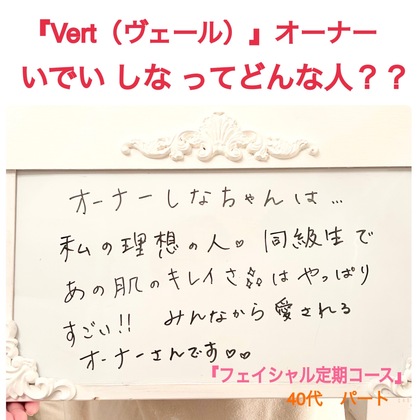 『Vert（ヴェール）』オーナー
いでい しな ってどんな人？？
オーナーしなちゃんは…
私の理想の人♡ 同級生で
あの肌のキレイさ✨はやっぱり
すごい!! みんなから愛される
オーナーさんです♡♡
『フェイシャル定期コース』
40代 パート